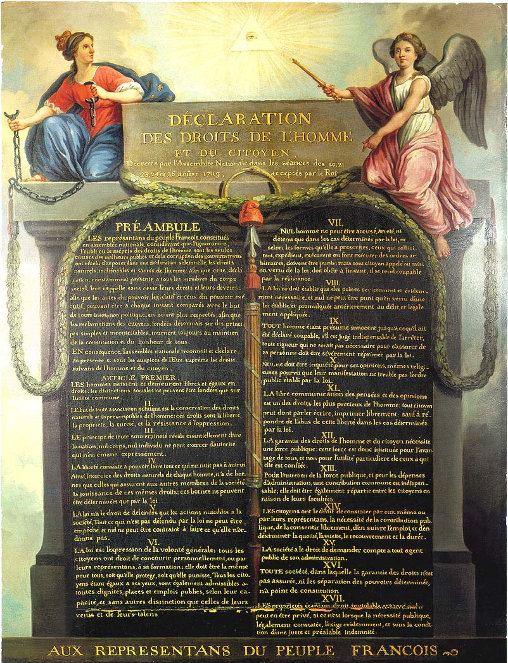 DÉCLARATION
DES DROITS DE L'HOMME
ET DU CITOYEN,
Décrétés par l'Assemblée Nationale dans les séances des 20, 21
23, 24 et 26 août 1789, acceptés par le Roi
PRÉAMBULE
LES représentans du peuple François constitués
en assemblée nationale, considérant que l'ignorance,
l'oubli ou le mépris des droits de l'homme sont les seules
causes des malheurs publics et de la corruption des gouvernemens
ont résolu d'exposer dans une déclaration solemnelle, les droits
naturels, inaliénables et sacrés de l'homme; afin que cette décla
ration, constamment présente à tous les membres du corps
social, leur rappelle sans cesse leurs droits et leurs devoirs;
afin que les actes du pouvoir législatif et ceux du pouvoir exé
cutif, pouvant être à chaque instant comparés avec le but
de toute institution politique, en soient plus respectés; afin que
les réclamations des citoyens, fondées désormais sur des princi
pes simples et incontestables, tournent toujours au maintien
de la constitution et du bonheur de tous.
EN conséquence, l'assemblée nationale reconnoît et déclare
en présence et sous les auspices de l'Être suprême les droits
suivans de l'homme et du citoyen.
ARTICLE PREMIER.
LES hommes naissent et demeurent libres et égaux en
droits; les distinctions sociales ne peuvent être fondées que sur
l'utilité commune.
II.
LE but de toute association politique est la conservation des droits
naturels et imprescriptibles de l'homme; ces droits sont la liberté,
la propriété, la sureté, et la résistance à l'oppression.
III.
LE principe de toute souveraineté réside essentiellement dans
la nation, nul corps, nul individu ne peut exercer d'autorité
qui n'en émane expressément.
IV.
LA liberté consiste à pouvoir faire tout ce qui ne nuit pas à autrui
Ainsi, l'exercice des droits naturels de chaque homme, n'a de bor
nes que celles qui assurent aux autres membres de la société
la jouissance de ces mêmes droits; ces bornes ne peuvent
être déterminées que par la loi
V.
LA loi n'a le droit de défendre que les actions nuisibles à la
société. Tout ce qui n'est pas défendu par la loi ne peut être
empêché, et nul ne peut être contraint à faire ce qu'elle n'or-
donne pas.
VI.
LA loi est l'expression de la volonté générale; tous les
citoyens ont droit de concourir personnellement, ou par
leurs représentans, à sa formation; elle doit être la même
pour tous, soit qu'elle protege, soit qu'elle punisse. Tous les cito
yens étant égaux à ses yeux, sont également admissibles à
toutes dignités, places et emplois publics, selon leur ca
pacité, et sans autres distinction que celles de leurs
vertus et de leurs talens.
VII.
NUL homme ne peut être accusé, arrêté, ni
détenu que dans les cas déterminés par la loi, et
selon les formes qu'elle a prescrites, ceux qui sollici
tent, expédient, exécutent ou font exécuter des ordres ar
bitraires, doivent être punis; mais tout citoyen appelé ou saisi
en vertu de la loi, doit obéir à l'instant, il se rend coupable
par la résistance.
VIII.
LA loi ne doit établir que des peines strictement et évidem
ment nécessaire, et nul ne peut être puni qu'en vertu d'une
loi établie et promulguée antérieurement au délit et légale
ment appliquée.
IX.
TOUT homme étant présumé innocent jusqu'à ce qu'il ait
été déclaré coupable, s'il est jugé indispensable de l'arrêter,
toute rigueur qui ne serait pas nécessaire pour s'assurer de
sa personne doit être sévèrement réprimée par la loi.
X.
NUL ne doit être inquiété pour ses opinions, mêmes religi
euses pourvu que leur manifestation ne trouble pas l'ordre
public établi par la loi.
XI.
LA libre communication des pensées et des opinions
est un des droits les plus précieux de l'homme; tout citoyen
peut donc parler, écrire, imprimer librement; sauf à ré
pondre de l'abus de cette liberté dans les cas déterminés
par la loi.
XII.
LA garantie des droits de l'homme et du citoyen nécessite
une force publique; cette force est donc instituée pour l'avan
tage de tous, et non pour l'utilité particulière de ceux à qui
elle est confiée.
XIII.
POUR l'entretien de la force publique, et pour les dépenses
d'administration, une contribution commune est indispen
sable; elle doit être également répartie entre les citoyens en
raison de leurs facultées.
XIV.
LES citoyens ont le droit de constater par eux même ou
par leurs représentans, la nécessité de la contribution pub
lique, de la consentir librement, d'en suivre l'emploi, et d'en
déterminer la quotité, l'assiette, le recouvrement et la durée.
XV.
LA société a le droit de demander compte à tout agent
public de son administration.
XVI.
TOUTE société, dans laquelle la garantie des droits n'est
pas assurée, ni les séparation des pouvoirs déterminée,
n'a point de constitution.
XVII.
LES propriétés étant un droit inviolable et sacré, nul ne
peut en être privé, si ce n'est lorsque la nécessité publique,
légalement constatée, l'exige évidemment, et sous la condi
tion d'une juste et préalable indemnité.
AUX REPRESENTANS DU PEUPLE FRANCOIS